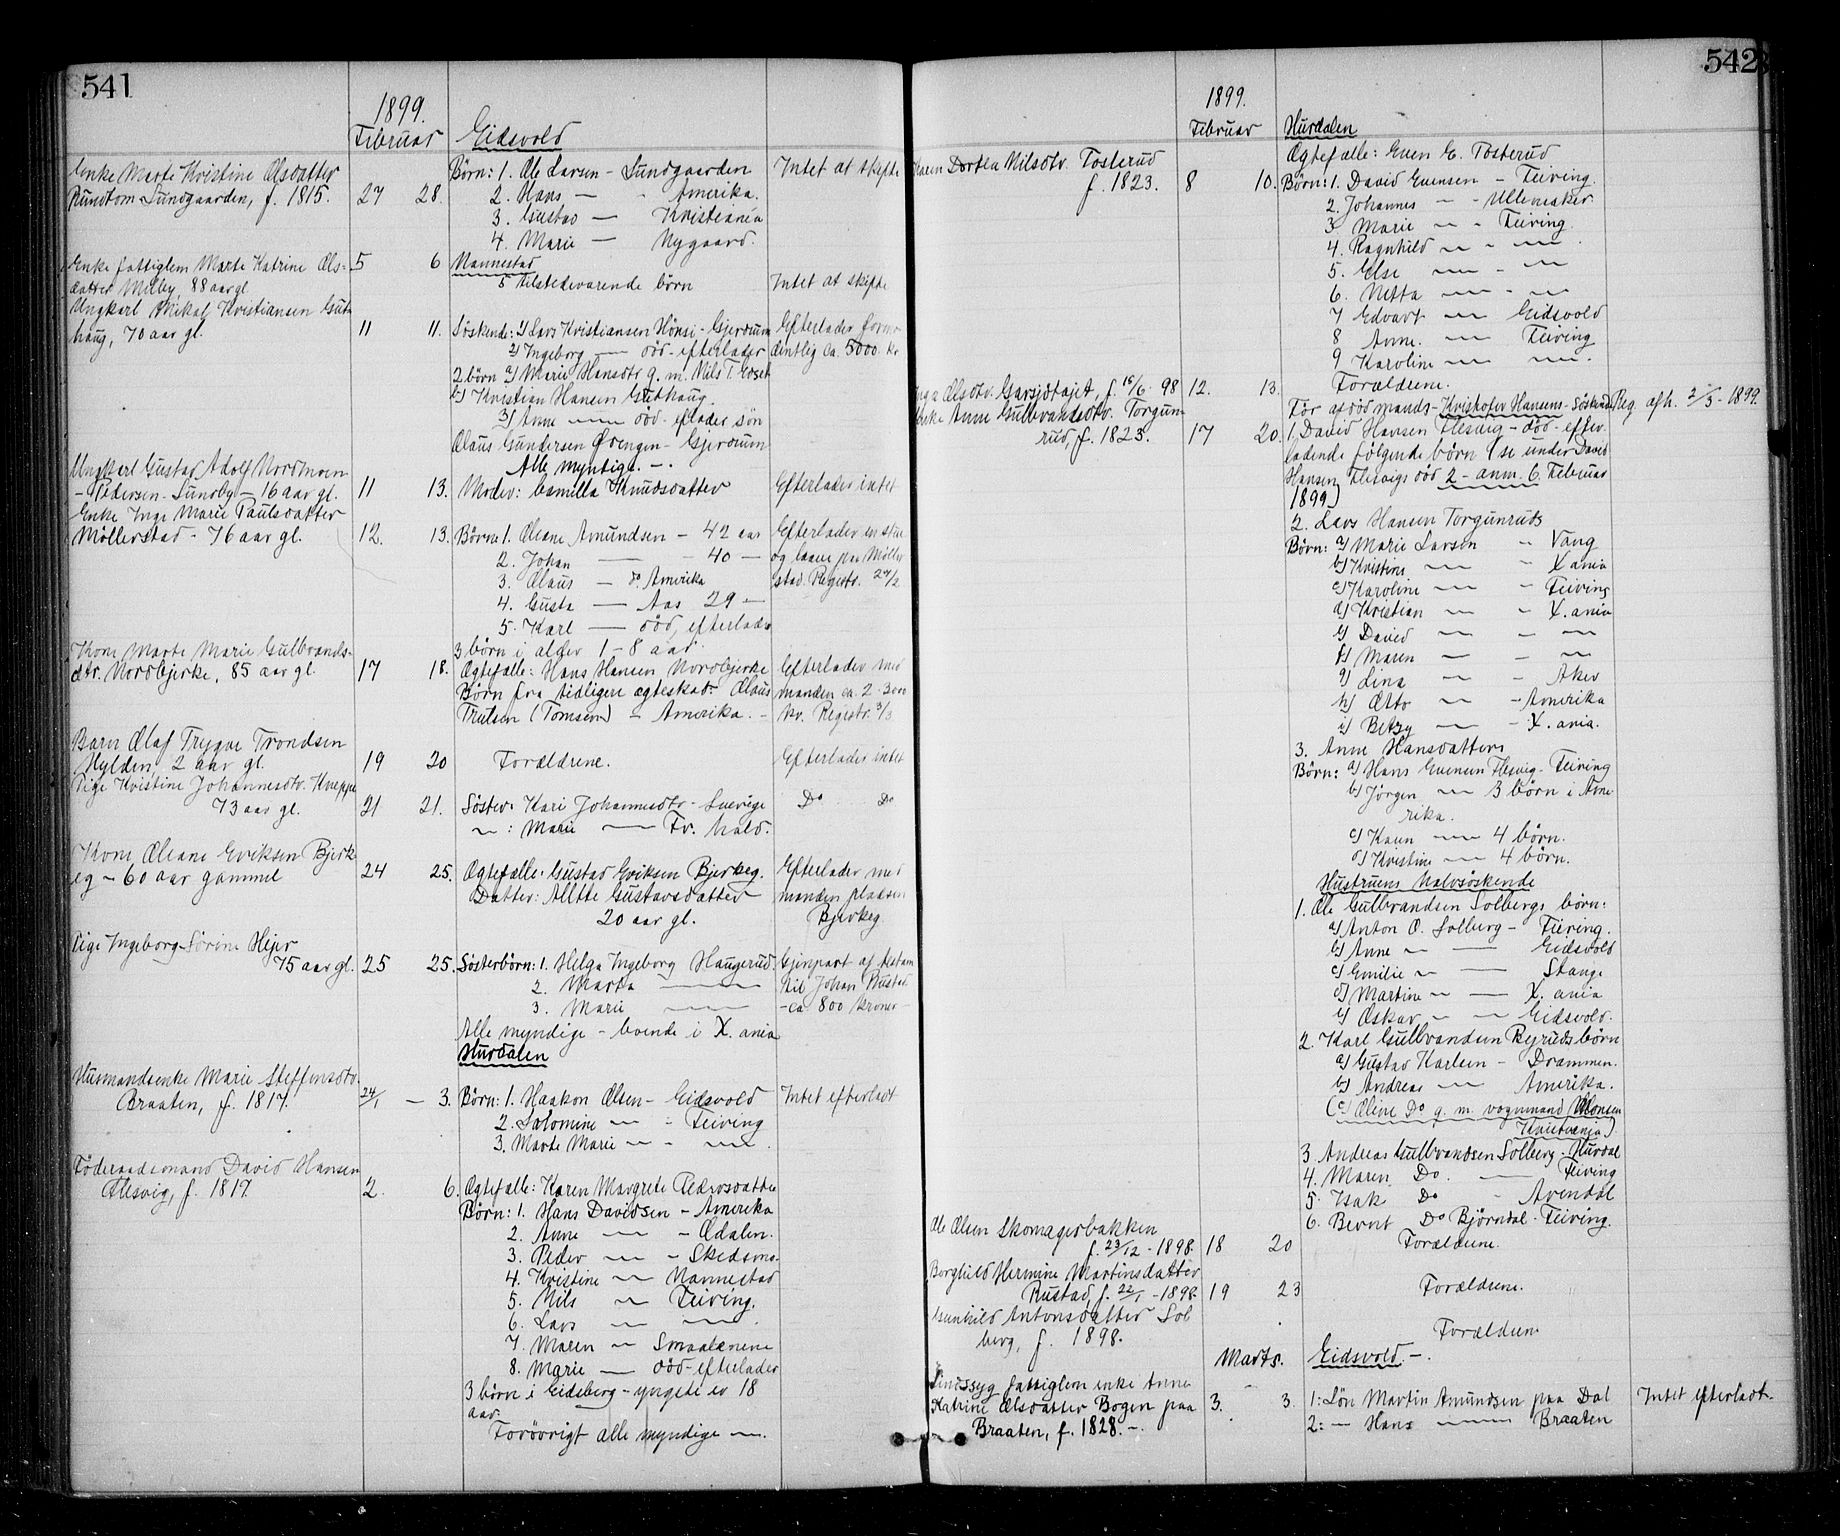 541
1899.
Februar
Eidsvold
Enke Marte Kristine Olsdatter
Rundtom-Sundgaarden, f. 1815.
27 28.
Børn: 1. Ole Larsen - Sundgaarden
2. Hans — " Amerika.
3. Gustav — Kristiania
4. Marie — Nygaard.
Intet at skifte
Enke fattiglem Marte Katrine Ols-
datter Melby 88 aar gl
5 6
Nannestad
5 tilstedeværende børn
Intet at skifte
Ungkarl Mikal Kristiansen Gut-
haug, 70 aar gl.
11 11.
Söskende: 1) Lars Kristiansen Hönsi - Gjerdrum
2) Ingeborg — död - efterlader
2 børn a) Marie Hansdtr g. m. Nils T.
b) Kristian Hansen Guthaug.
3) Anne — död - eflader sön
Olaus Gundersen Grengen - Gjerdrum
Alle myntige. -.
Efterlader formo-
dentlig ca. 5000 kr
Ungkarl Gustav Adolf Nordmoen
- Pedersen - Sundby - 16 aar gl.
11 13.
Moder: Camilla Knudsdatter
Efterlader intet
Enke Inge Marie Paulsdatter
Möllerstad - 76 aar gl.
12. 13.
Børn: 1. Oliane Amundsen - 42 aar
2. Johan — - 40 —
3. Olaus — do Amerika
4. Gusta — Aas 29 —
5. Karl — död, efterlader
3 børn i alder 1 - 8 aar.
Efterlader en stue
og laave paa Möller
stad. Registr. 24/2
Kone Marte Marie Gulbrands-
dtr. Nordbjerke, 85 aar gl.
17 18.
Ægtefælle: Hans Hansen Nordbjerke
Børn fra tidligere ægteskab: Olaus
Trulsen (Tomsen) - Amerika. -
Efterlader med
manden ca. 2-3000
kr. Registr. 3/3
Barn Olaf Trygve Trondsen
Hylden, 2 aar gl.
19 20
Forældrene.
Efterlader intet
Pige Kristine Johannesdtr. Kneppe
73 aar gl.
21 21.
Söster: Kari Johannesdtr - Sverige
" : Marie — Fr. hald.
Do Do
Kone Oleane Eriksen Bjerk
eg - 60 aar gammel
24 25.
Ægtefælle: Gustav Eriksen Bjerkeg.
Datter: Alltte Gustavsdatter
20 aar gl.
Efterlader med
manden pladsen
Bjerkeg
Pige Ingeborg Sörine Hejer
75 aar gl.
25 25.
Sösterbörn: 1. Helga Ingeborg Haugerud.
2. Marta —
3. Marie —
Alle myndige - boende i X. ania
Gjenpart af testam
til Johan Rustad.
- ca 800 kroner -
Hurdalen
Husmandsenke Marie Steffensdtr.
Braaten, f. 1817.
24/1 — 3.
Børn: 1. Haakon Olsen - Eidsvold
2. Salomine — - Feiring
3. Marte Marie — - —
Intet efterladt
Föderaadsmand David Hansen
Flesvig, f. 1817.
2. 6.
Ægtefælle: Karen Margrete Pedersdatter
Børn: 1. Hans Davidsen - Amerika
2. Anne — - Odalen.
3. Peder — - Skedsmo
4. Kristine — Nannestad
5. Nils — Feiring.
6. Lars — —
7. Maren — Smaalenene
8. Marie — död - efterlader
3 børn i Eidsberg - yngste er 18
aar.
Forövrigt alle myndige —.
542
1899.
Februar
Hurdalen
Karen Dortea Nilsdtr. Tosterud
f. 1823.
8 10.
Ægtefælle: Even E. Tosterud
Børn: 1. David Evensen - Feiring.
2. Johannes — - Ullensaker
3 Marie — - Feiring.
4. Ragnhild — - —
5. Else — - —
6. Netta — - —
7 Edvart — Eidsvold
8 Anne. — Feiring
9 Karoline — —
Olsdtr. Garsjötajet, f. 15/6 98
12. 13.
Forældrene.
Enke Anne Gulbrandsdtr. Torgun-
rud, f. 1823.
17 20.
För afdöd mands - Kristofer Hansens - Söskende
1, David Hansen Flesvig - död - efter-
ladende fölgende børn (se under David
Hansen Flesvigs död 2 - anm. 6. Februar
1899)
Reg. afh. 2/3 - 1899.
2. Lars Hansen Torgunruds
Børn: a) Marie Larsen - Vang
b) Kristine — - X ania
c) Karoline — - Feiring
d) Kristian — - X. ania
e) David — - —
f) Maren — - —
g) Lina — - Aker
h) Otto — - Amerika
i) Betzy — - X. ania.
3. Anne Hansdatters
Børn: a) Hans Evensen Flesvig - Feiring
b) Jörgen — 3 børn i Ame
rika.
c) Karen — 4 børn.
d) Kristine — 4 børn.
Hustruens Halvsöskende
1. Ole Gulbrandsen Solbergs børn:
a) Anton O. Solberg - Feiring.
b) Anne — — Eidsvold
c) Emilie — — Stange
d) Martine — — X. ania
e) Oskar — — Eidsvold.
2. Karl Gulbrandsen Rejruds børn
a) Gustav Karlsen - Drammen.
b) Andreas — Amerika.
(c) Oline Do g. m. vognmand Monsen
Kristiania)
3 Andreas Gulbrandsen Solberg - Hurdal
4. Maren Do. — Feiring
5. Isak Do - Arendal
6. Bernt Do Björndal - Feiring.
Ole Olsen Skomagerbakken
f. 23/12 - 1898.
18 20
Forældrene.
Borghild Hermine Martinsdatter
Rustad, f. 22/1 - 1898.
19 23
Forældrene.
Gunhild Antonsdatter Sol
berg, f. 1898.
Forældrene
Marts.
Eidsvold. -.
Sindssyg fattiglem enke Anne
Katrine Olsdatter Bogen paa
Braaten, f. 1828. -.
3. 3.
1: Sön Martin Amundsen paa Dal
2: — Hans — Braaten
Intet efterladt.